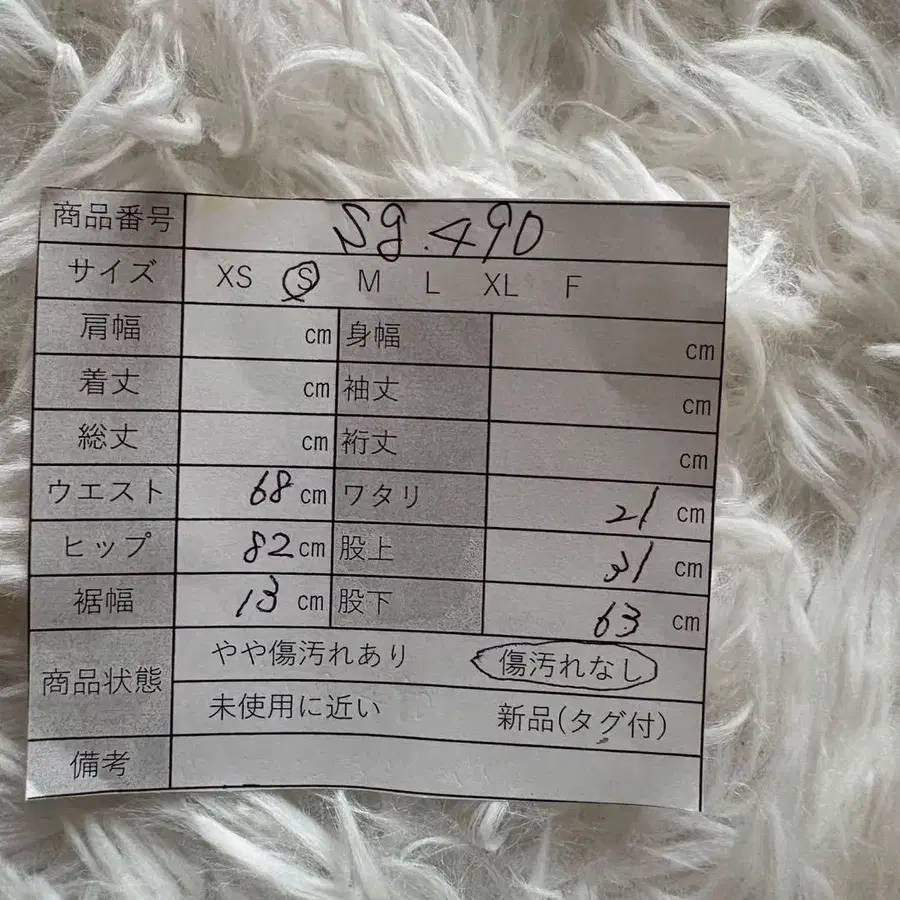 商品番号 Sg.490
サイズ XS S M L XL F
肩幅 cm 身幅 cm
着丈 cm 袖丈 cm
総丈 cm 裄丈 cm
ウエスト 68 cm ワタリ 21 cm
ヒップ 82 cm 股上 31 cm
裾幅 13 cm 股下 63 cm
商品状態 やや傷汚れあり 傷汚れなし
未使用に近い 新品(タグ付)
備考